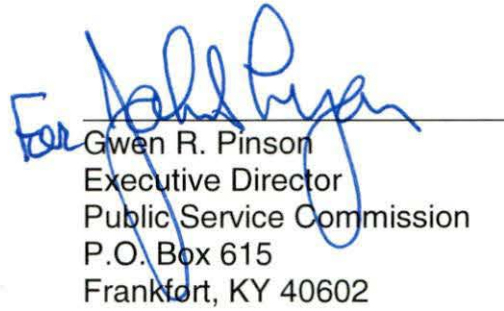 For John Lyon
Gwen R. Pinson
Executive Director
Public Service Commission
P.O. Box 615
Frankfort, KY 40602